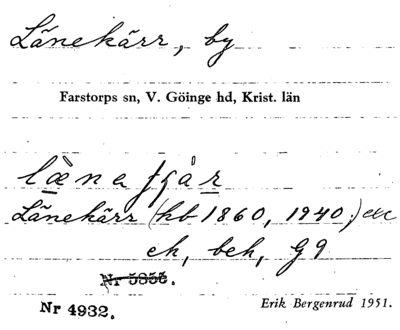 Länekärr, by
Farstorps sn, V. Göinge hd, Krist. län
Länekärr (hb 1860, 1940;)
ek, bek, G9
Nr 5856.
Nr 4932.
Erik Bergenrud 1951.